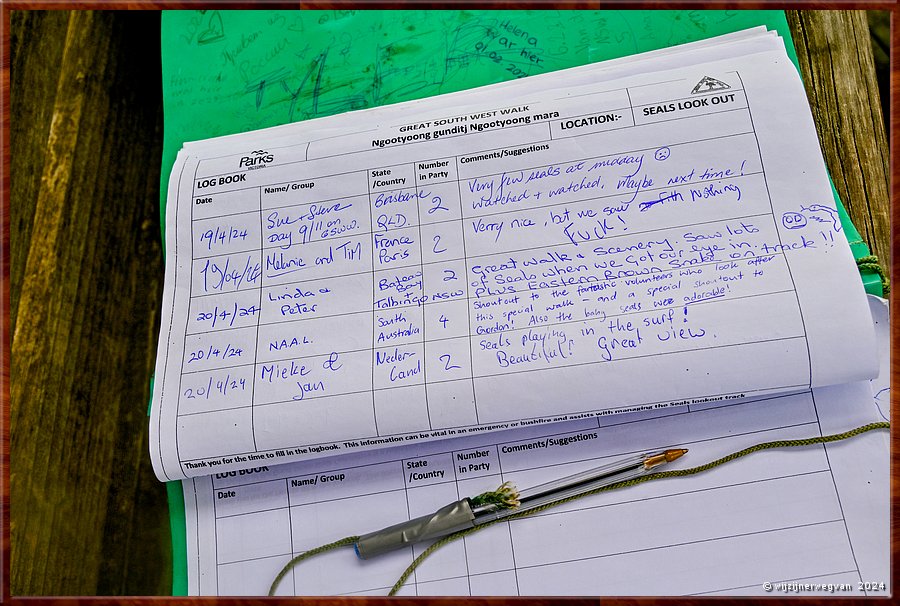 Helena
war hier
GREAT SOUTH WEST WALK
Ngootyoong gunditj Ngootyoong mara
LOCATION:-
SEALS LOOK OUT
Parks
VICTORIA
LOG BOOK
Date
Name/ Group
State /Country
Number in Party
Comments/Suggestions
19/4/24
Sue + Steve
Day 9/11 on GSWW.
Brisbane
QLD.
2
Very few seals at midday
watched + watched, maybe next time!
19/04/24
Melanie and TiM
France
Paris
2
Verry nice, but we saw Nothing
Fuck!
20/4/24
Linda &
Peter
Bay
Talbingo NSW
2
Great walk & Scenery. Saw lots
of Seals when we got our eye in.
Plus Eastern Brown Snake on track!!
20/4/24
N.A.A.L.
South
Australia
4
Shoutout to the fantastic volunteers who look after
this special walk - and a special shoutout to
Gordon! Also the baby seals were adorable!
20/4/24
Mieke &
Jan
Neder-
land
2
Seals playing in the surf!
Beautiful! Great view.
Thank you for the time to fill in the logbook. This information can be vital in an emergency or bushfire and assists with managing the Seals lookout track
LOG BOOK
Date
Name/ Group
State /Country
Number in Party
Comments/Suggestions
© wijzijnerwegvan 2024